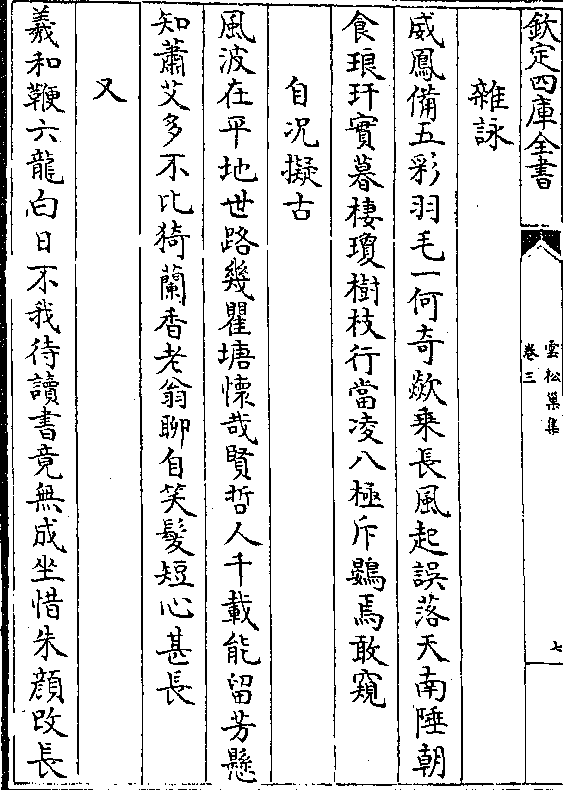 欽定四庫全書
雲松巢集
卷三
七
雜詠
威鳳備五彩羽毛一何奇歘乗長風起誤落天南陲朝
食琅玕實暮棲瓊樹枝行當凌八極斥鷃焉敢窺
自况擬古
風波在平地世路幾瞿塘懷哉賢哲人千載能留芳懸
知蕭艾多不比猗蘭香老翁聊自笑髮短心甚長
又
羲和鞭六龍白日不我待讀書竟無成坐惜朱顔改長